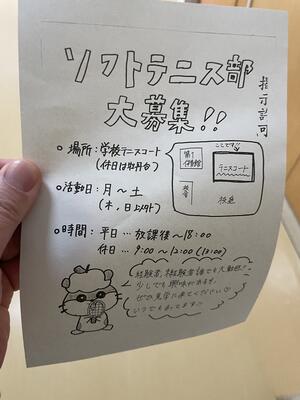 ソフトテニス部
大募集!!
掲示許可
○場所：学校テニスコート
(休日は牡丹台)
ここです!
第1
体育館
テニスコート
校舎
校庭
○活動日：月～土
(木、日以外)
○時間：平日…放課後～18:00
休日…9:00～12:00(13:00)
経験者、未経験者誰でも大歓迎!
少しでも興味があるなら
ぜひ見学に来てください♡
いつでもまってます!!